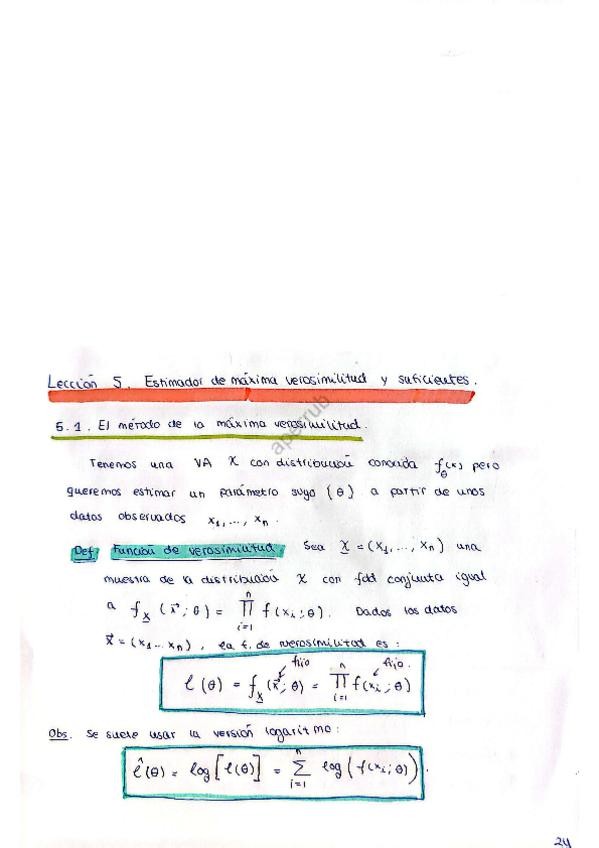 Lección 5. Estimador de máxima verosimilitud y suficientes.
5.1. El método de la máxima verosimilitud.
Tenemos una VA X con distribución conocida f_θ(x) pero
queremos estimar un parámetro suyo (θ) a partir de unos
datos observados x₁, ..., xₙ.
Def Función de verosimilitud. Sea X = (X₁, ..., Xₙ) una
muestra de la distribución X con fdd conjunta igual
a f_X (x⃗; θ) = ∏ᵢ₌₁ⁿ f(xᵢ; θ). Dados los datos
x⃗ = (x₁ ... xₙ), la f. de verosimilitud es:
fijo fijo.
ℓ(θ) = f_X(x⃗; θ) = ∏ᵢ₌₁ⁿ f(xᵢ; θ)
Obs. Se suele usar la versión logaritmo:
ℓ̂(θ) = log[ℓ(θ)] = ∑ᵢ₌₁ⁿ log(f(xᵢ; θ)).
24
aperrub